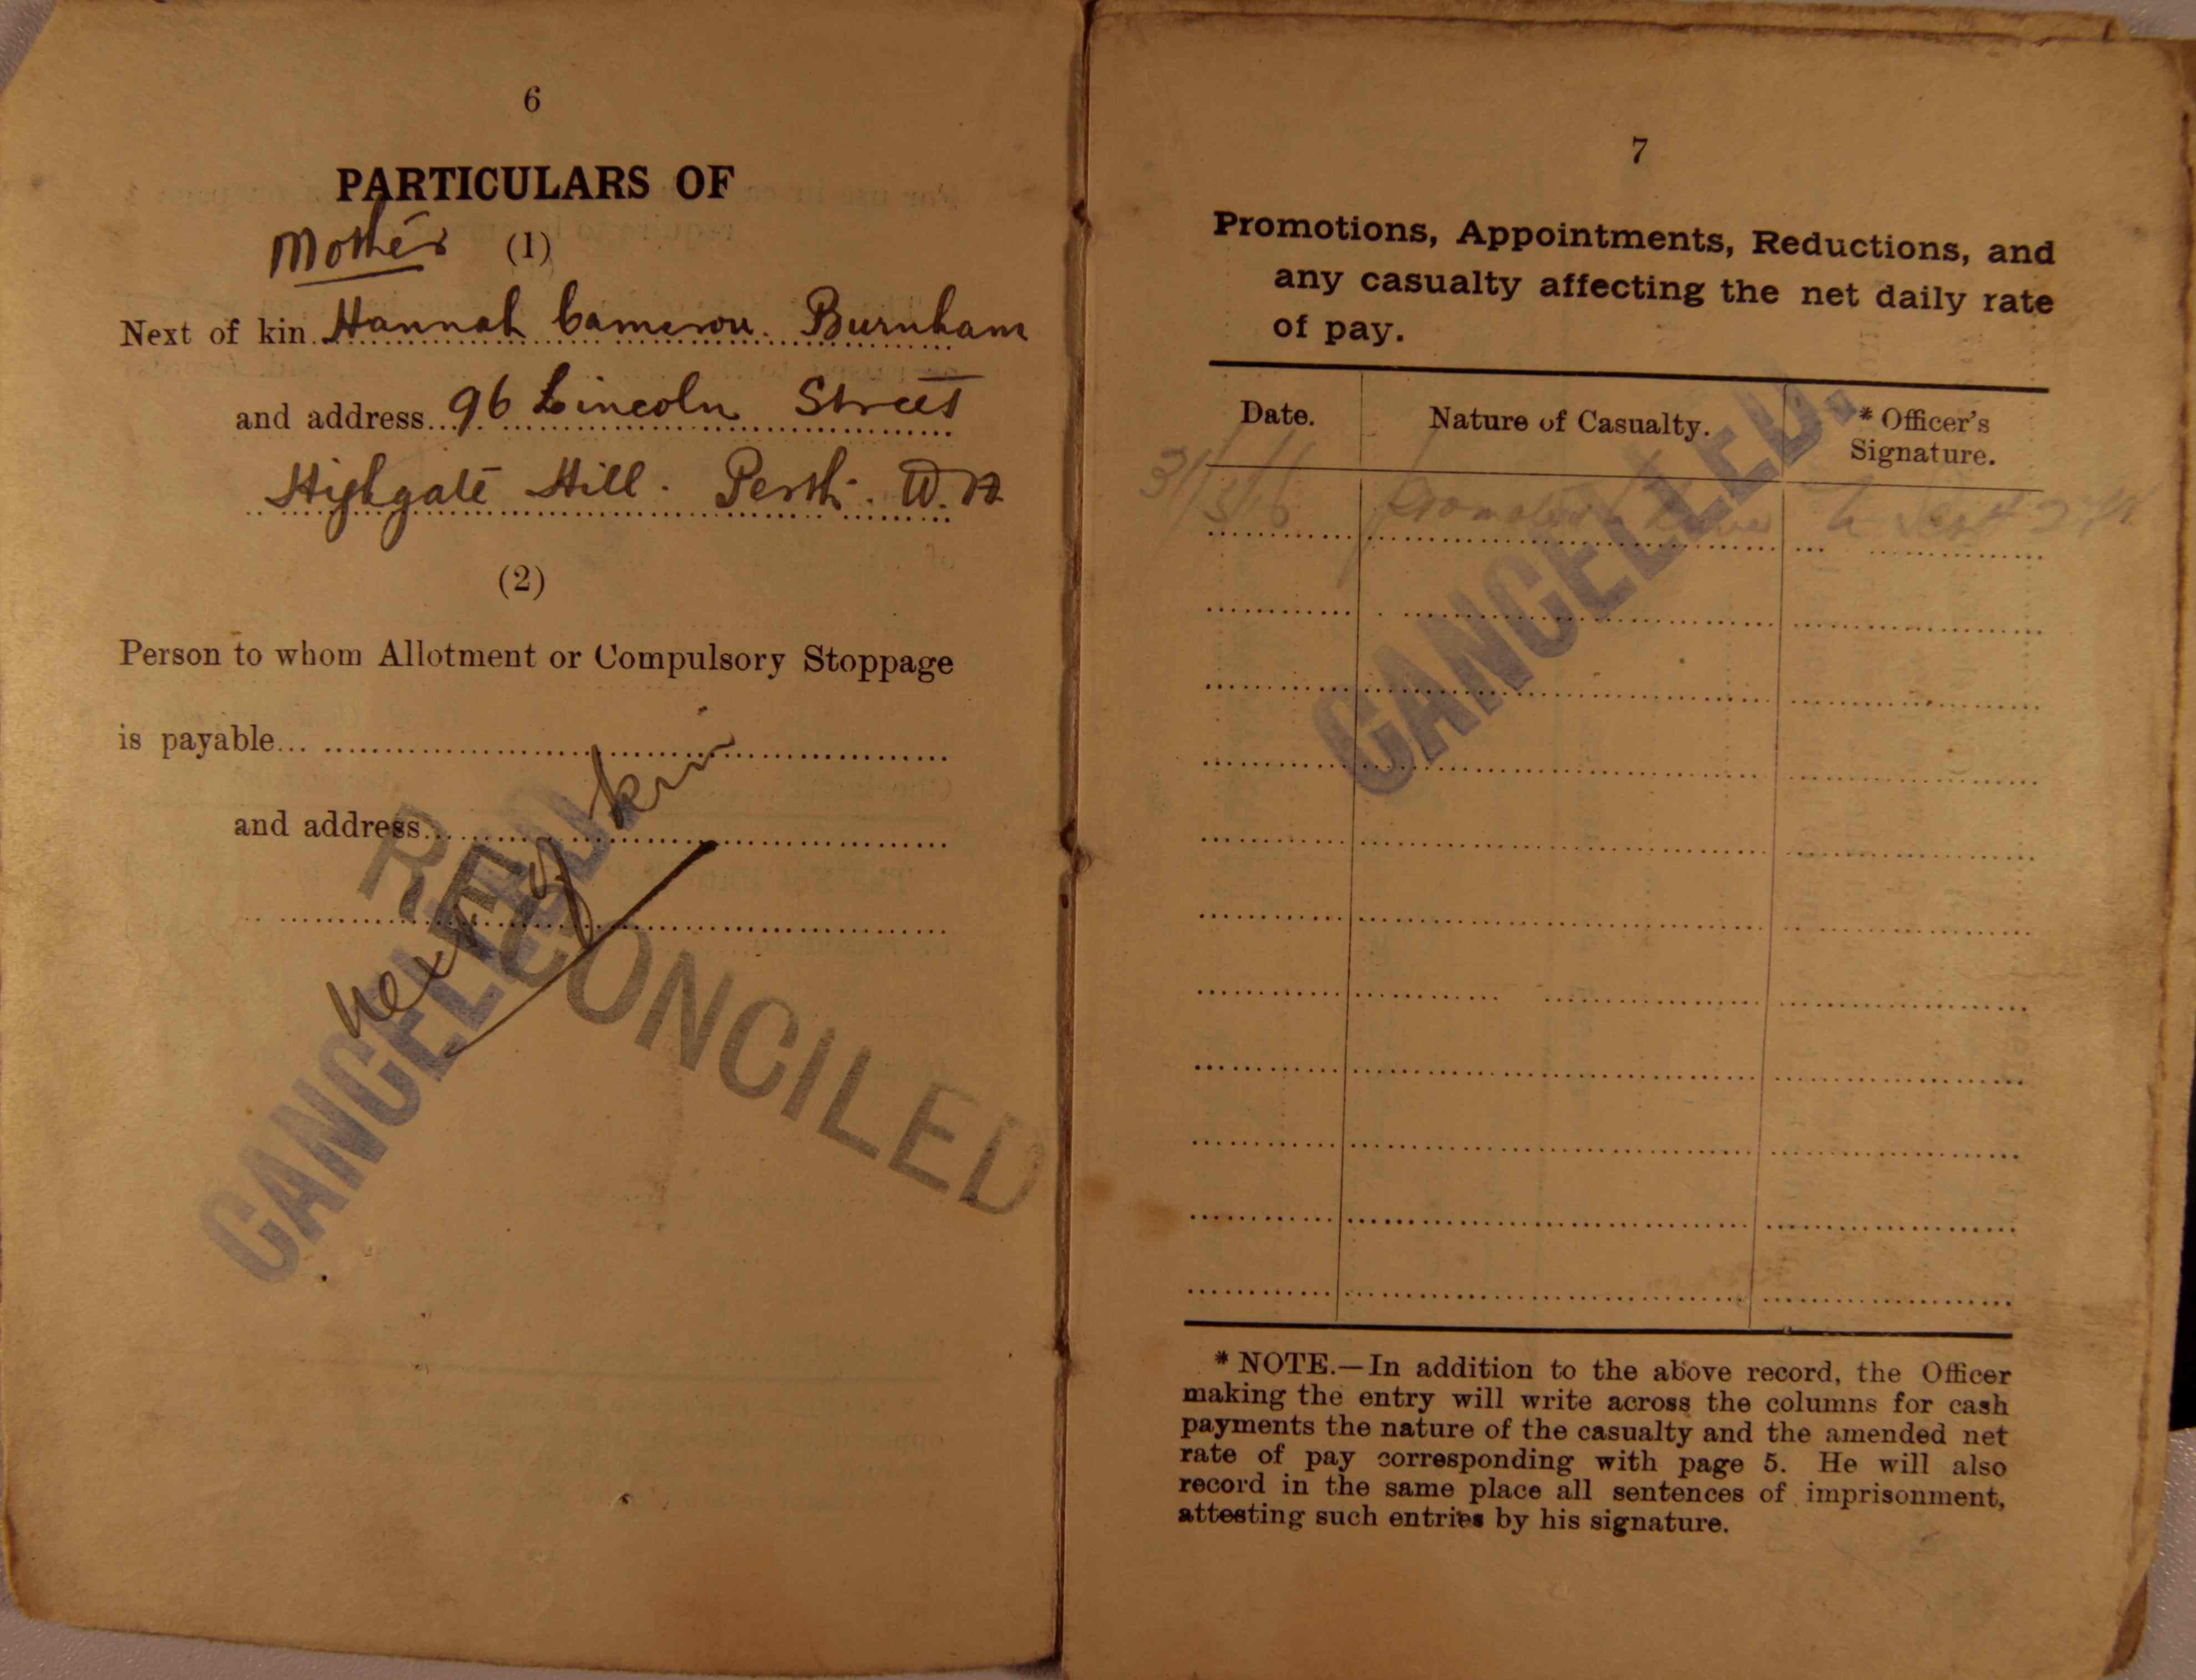 6
PARTICULARS OF
Mother (1)
Next of kin Hannah Cameron. Burnham
and address 96 Lincoln Street
Highgate Hill. Perth. W.A
(2)
Person to whom Allotment or Compulsory Stoppage
is payable
and address
next of kin
CANCELLED.
RECONCILED
7
Promotions, Appointments, Reductions, and
any casualty affecting the net daily rate
of pay.
Date. Nature of Casualty. * Officer's
Signature.
31/3/16 Promoted
CANCELLED.
* NOTE.—In addition to the above record, the Officer
making the entry will write across the columns for cash
payments the nature of the casualty and the amended net
rate of pay corresponding with page 5. He will also
record in the same place all sentences of imprisonment,
attesting such entries by his signature.